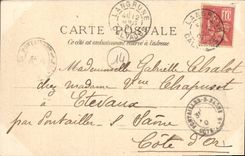 CARTE POSTALE
Ce côté est exclusivement réservé à l'adresse
LANGRUNE
10
14
Mademoiselle Gabrielle Chalot
chez madame Vve Chapusot
à
Etevaux
par Pontailler s/ Saône
Côte d'Or